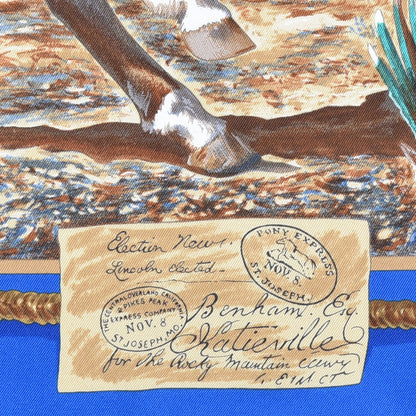 Election News.
Lincoln elected.
PONY EXPRESS
NOV. 8
ST. JOSEPH.
THE CENTRAL OVERLAND CALIFORNIA
& PIKES PEAK
EXPRESS COMPANY
NOV. 8
ST JOSEPH, MO.
Benham Esq.
Katieville
for the Rocky Mountain